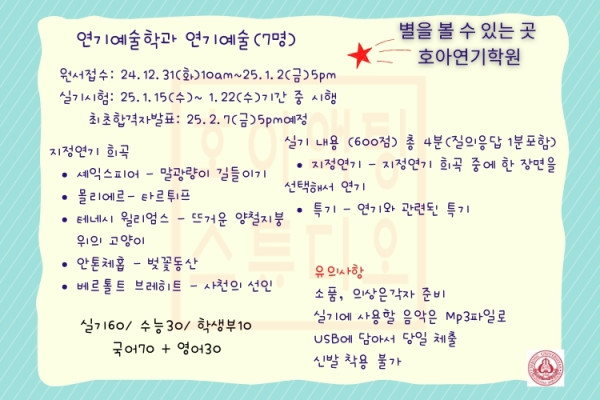 연기예술학과 연기예술(7명)
별을 볼 수 있는 곳
호아연기학원
원서접수: 24.12.31(화)10am~25.1.2(금)5pm
실기시험: 25.1.15(수)~ 1.22(수)기간 중 시행
최초합격자발표: 25.2.7(금)5pm예정
지정연기 희곡
• 셰익스피어 - 말괄량이 길들이기
• 몰리에르- 타르튀프
• 테네시 윌리엄스 - 뜨거운 양철지붕
위의 고양이
• 안톤체홉 - 벚꽃동산
• 베르톨트 브레히트 - 사천의 선인
실기60/ 수능30/ 학생부10
국어70 + 영어30
실기 내용 (600점) 총 4분(질의응답 1분포함)
• 지정연기 - 지정연기 희곡 중에 한 장면을
선택해서 연기
• 특기 - 연기와 관련된 특기
유의사항
소품, 의상은각자 준비
실기에 사용할 음악은 Mp3파일로
USB에 담아서 당일 제출
신발 착용 불가
호아액팅
스튜디오